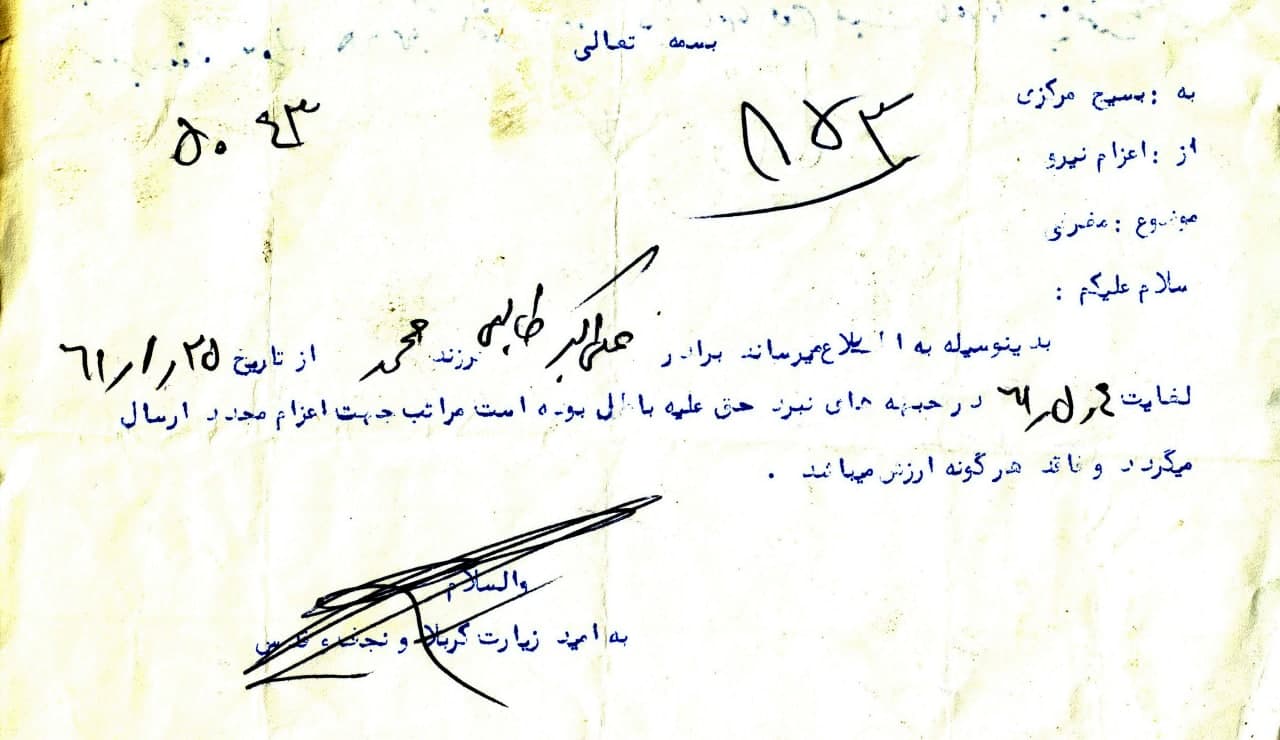 بسمه تعالی
به : بسیج مرکزی
از : اعزام نیرو
موضوع : معرفی
۸۵۳
۵۰۴۳
سلام علیکم :
بدینوسیله به اطلاع میرساند برادر علی اکبر طالبی فرزند محمد از تاریخ ۶۱/۱/۲۵
لغایت ۶۱/۵/۴ در جبهه های نبرد حق علیه باطل بوده است مراتب جهت اعزام مجدد ارسال
میگردد و فاقد هرگونه ارزش میباشد .
والسلام
به امید زیارت کربلا و نجف و قدس